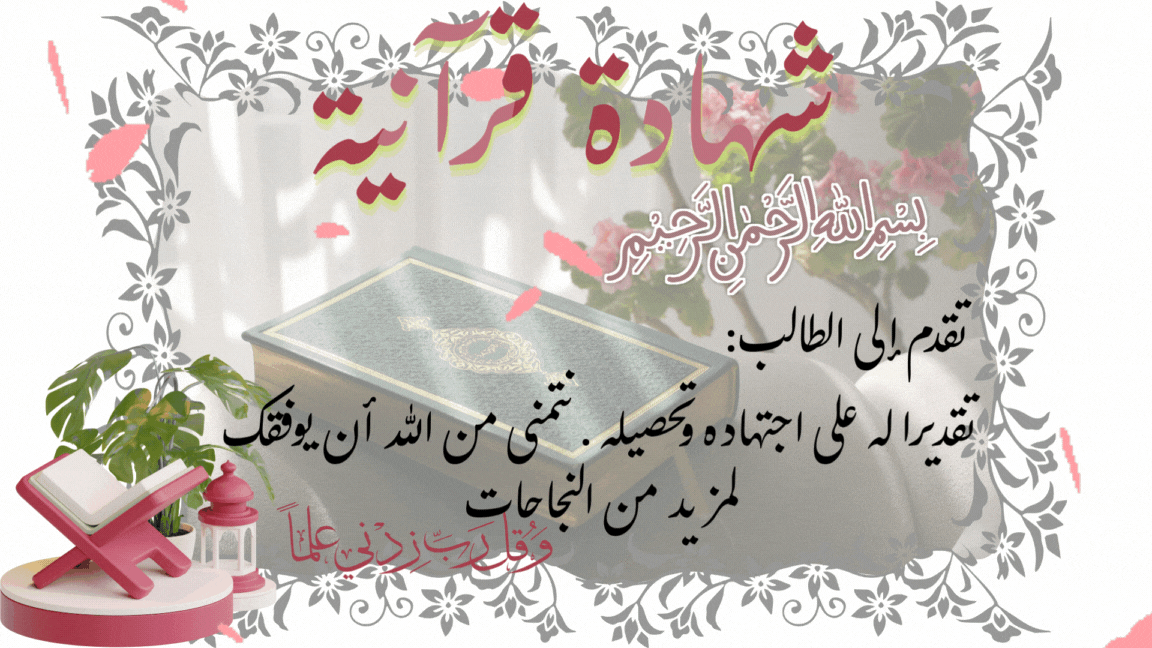 شهادة قرآنية
بِسْمِ اللهِ الرَّحْمٰنِ الرَّحِيْمِ
تقدم إلى الطالب:
تقديرا له على اجتهاده وتحصيله. نتمنى من الله أن يوفقك
لمزيد من النجاحات
وَقُل رَبِّ زِدْنِي عِلماً